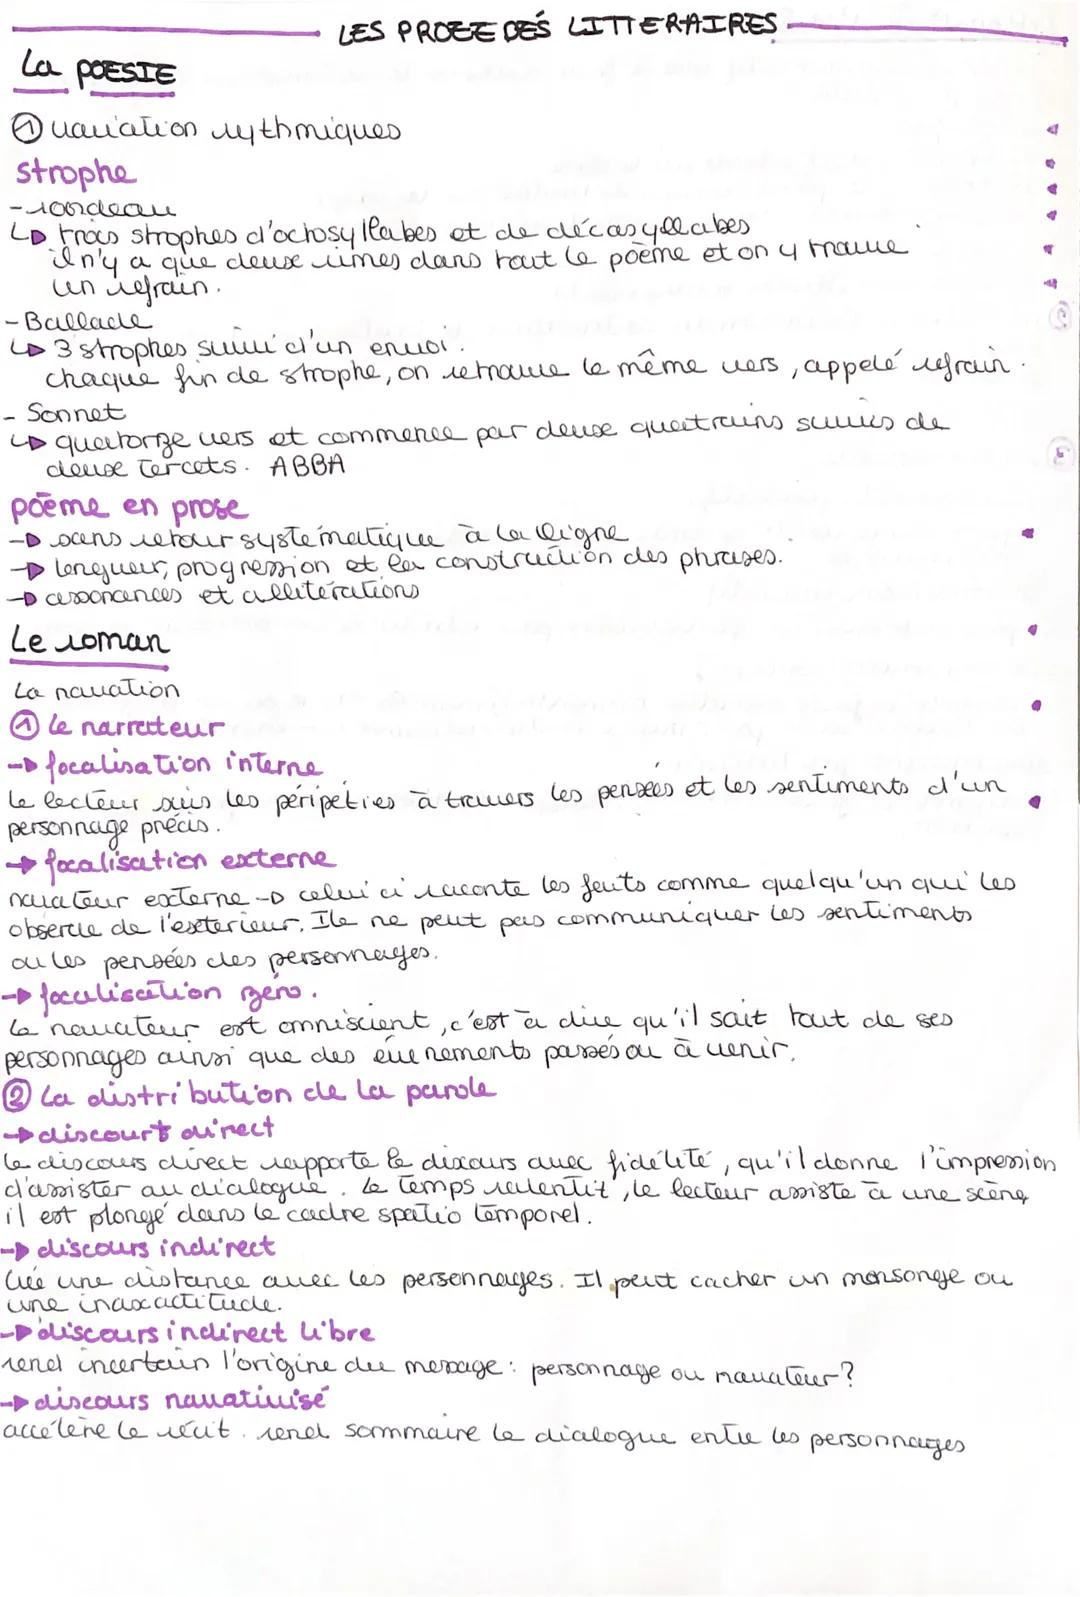 LES PROCEDÉS LITTERAIRES
La POESIE
① variation rythmiques
strophe
- rondeau
↳ trois strophes d'octosyllabes et de décasyllabes
il n'y a que deux rimes dans tout le poème et on y trouve
un refrain.
- Ballade
↳ 3 strophes suivi d'un envoi.
chaque fin de strophe, on retrouve le même vers, appelé refrain.
- Sonnet
↳ quatorze vers et commence par deux quatrains suivis de
deux tercets. ABBA
poème en prose
→ sans retour systématique à la ligne
→ longueur, progression et la construction des phrases.
→ assonances et allitérations
Le roman
La narration
① le narrateur
→ focalisation interne
Le lecteur suis les péripéties à travers les pensées et les sentiments d'un
personnage précis.
→ focalisation externe
narrateur externe → celui ci raconte les faits comme quelqu'un qui les
observe de l'exterieur. Ile ne peut pas communiquer les sentiments
ou les pensées des personnages.
→ focalisation zéro.
Le narrateur est omniscient, c'est à dire qu'il sait tout de ses
personnages ainsi que des évenements passés ou à venir.
② La distribution de la parole
→ discours direct
Le discours direct rapporte le discours avec fidélité, qu'il donne l'impression
d'assister au dialogue. Le temps ralentit, le lecteur assiste à une scène
il est plongé dans le cadre spatio temporel.
→ discours indirect
Crée une distance avec les personnages. Il peut cacher un mensonge ou
une inaxactitude.
→ discours indirect libre
rend incertain l'origine du message : personnage ou narrateur ?
→ discours narrativisé
accélère le récit. rend sommaire le dialogue entre les personnages